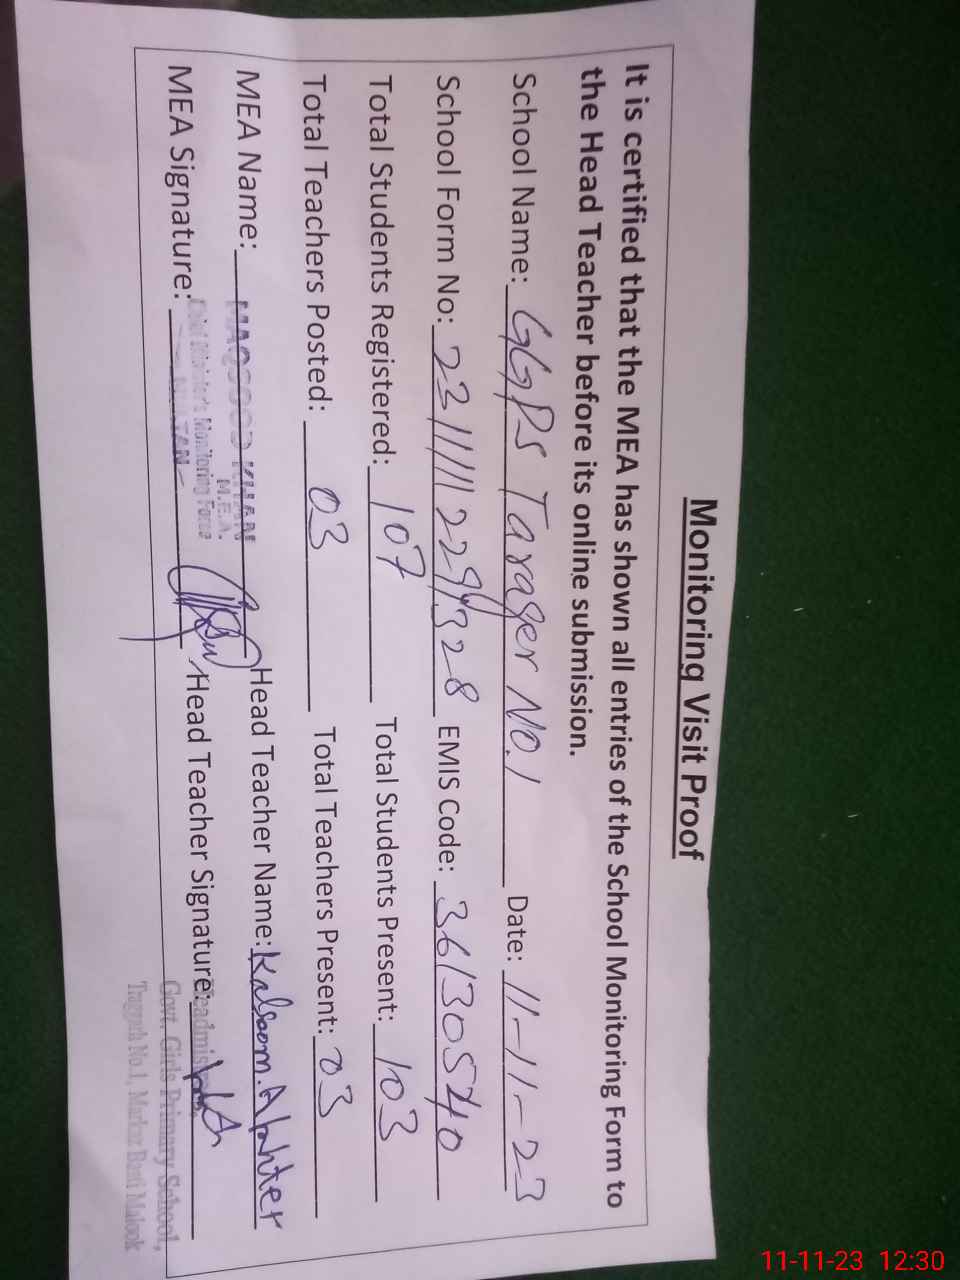 Monitoring Visit Proof
It is certified that the MEA has shown all entries of the School Monitoring Form to
the Head Teacher before its online submission.
School Name: GGPS Tarager No.1 Date: 11-11-23
School Form No: EMIS Code: 36130540
Total Students Registered: 107 Total Students Present: 103
Total Teachers Posted: 03 Total Teachers Present: 03
MEA Name: MAQSOOD KHAN Head Teacher Name: Kalsoom.Akhter
M.E.A.
Chief Minister's Monitoring Force
MEA Signature: MULTAN Head Teacher Signature:
Govt. Girls Primary School,
No.1, Markaz Basti Malook
11-11-23 12:30